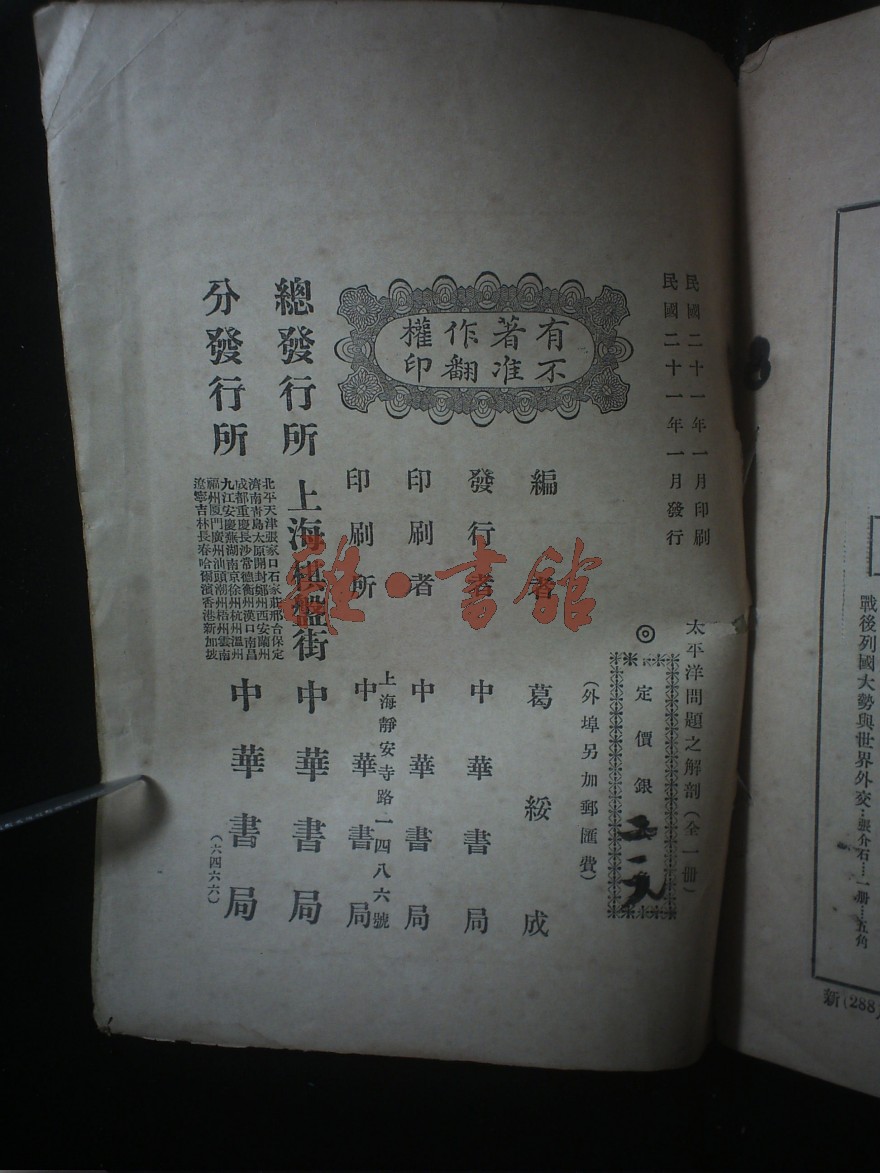 民國二十一年一月印刷
民國二十一年一月發行
太平洋問題之解剖(全一冊)
◎
定價銀
(外埠另加郵匯費)
有著作權
不准翻印
編者 葛綏成
發行者 中華書局
印刷者 中華書局
上海靜安寺路一四八六號
印刷所 中華書局
總發行所 上海棋盤街 中華書局
分發行所
北平天津張家口石家莊邢台保定
濟南青島太原開封鄭州西安蘭州
成都重慶長沙常德衡州漢口南昌
九江安慶蕪湖南京徐州杭州溫州
福州廈門廣州汕頭潮州梧州雲南
遼寧吉林長春哈爾濱香港新加坡
中華書局
(六四六六)
雜·書館
8
戰後列國大勢與世界外交…張介石…一冊…五角
新(288)